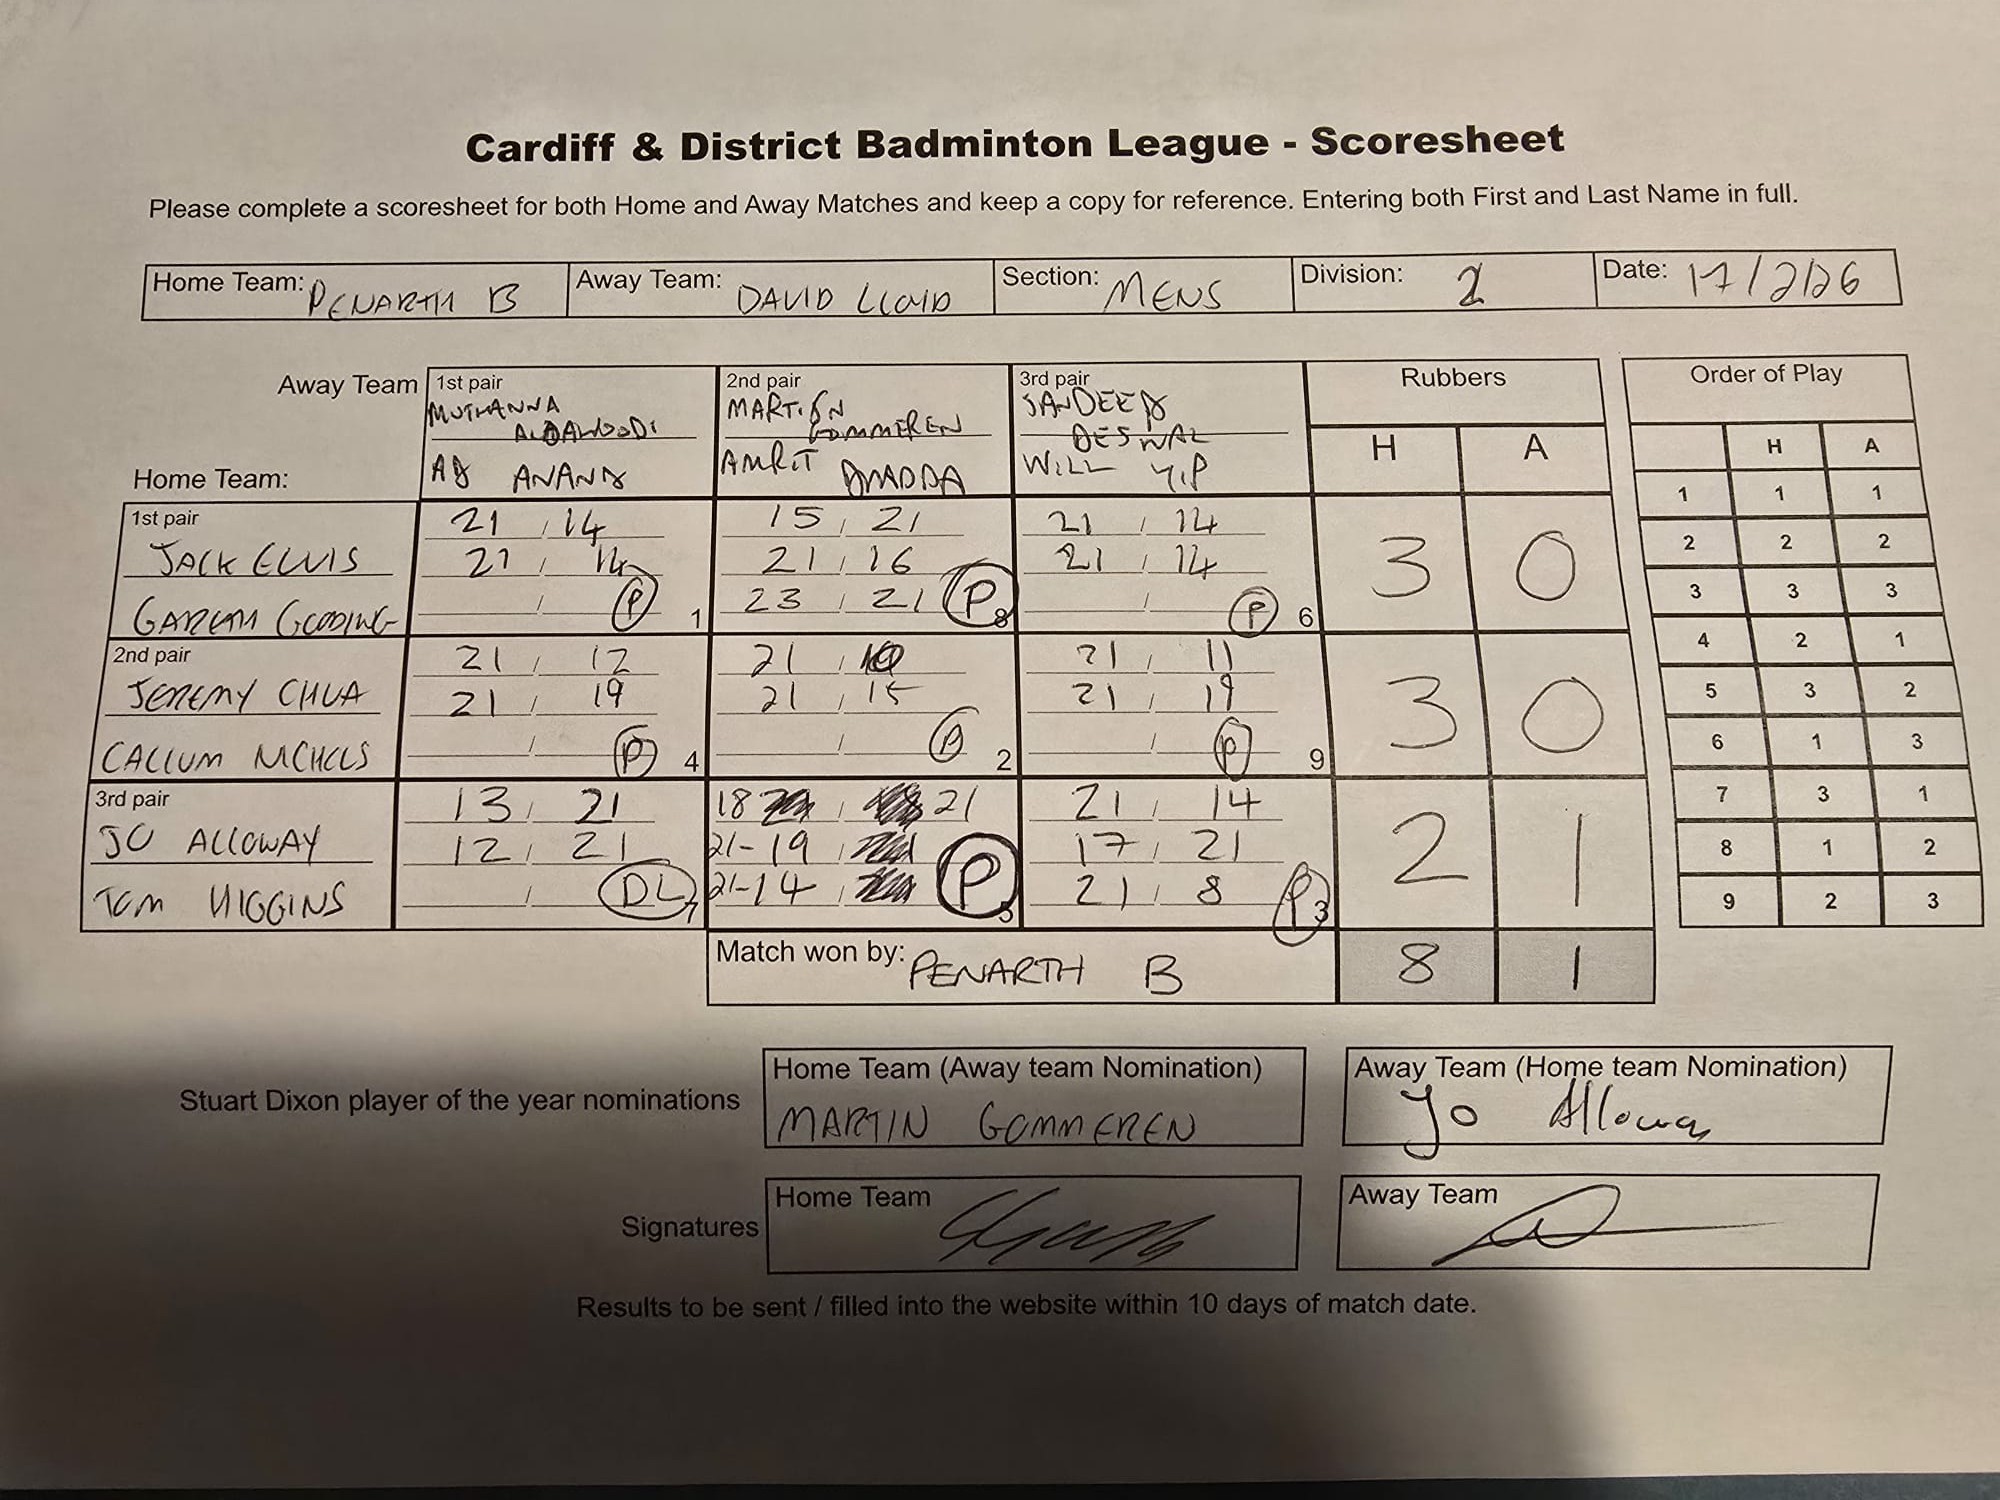 Cardiff & District Badminton League - Scoresheet
Please complete a scoresheet for both Home and Away Matches and keep a copy for reference. Entering both First and Last Name in full.
Home Team: PENARTH B Away Team: DAVID LLOYD Section: MENS Division: 2 Date: 17/2/26
Away Team 1st pair 2nd pair 3rd pair Rubbers Order of Play
MUTHANNA MARTIJN SANDEEP
ALDAWOODI GOMMEREN DESWAL H A H A
Home Team: AJ ANAND AMRIT WILL YIP
1 1 1
1st pair 21 / 14 15 / 21 21 / 14
JACK ELVIS 21 / 14 21 / 16 21 / 14 3 0 2 2 2
GARETH GOODING / P 1 23 / 21 P 8 / P 6 3 3 3
2nd pair 21 / 12 21 / 10 21 / 11 4 2 1
JEREMY CHUA 21 / 19 21 / 15 21 / 19 3 0 5 3 2
CALLUM NICHOLS / P 4 / P 2 / P 9 6 1 3
3rd pair 13 / 21 18 / 21 21 / 14 7 3 1
JO ALLOWAY 12 / 21 21-19 / 17 / 21 2 1 8 1 2
TOM HIGGINS / DL 7 21-14 / P 5 21 / 8 P 3 9 2 3
Match won by: PENARTH B 8 1
Home Team (Away team Nomination) Away Team (Home team Nomination)
Stuart Dixon player of the year nominations MARTIN GOMMEREN Jo Alloway
Home Team Away Team
Signatures
Results to be sent / filled into the website within 10 days of match date.